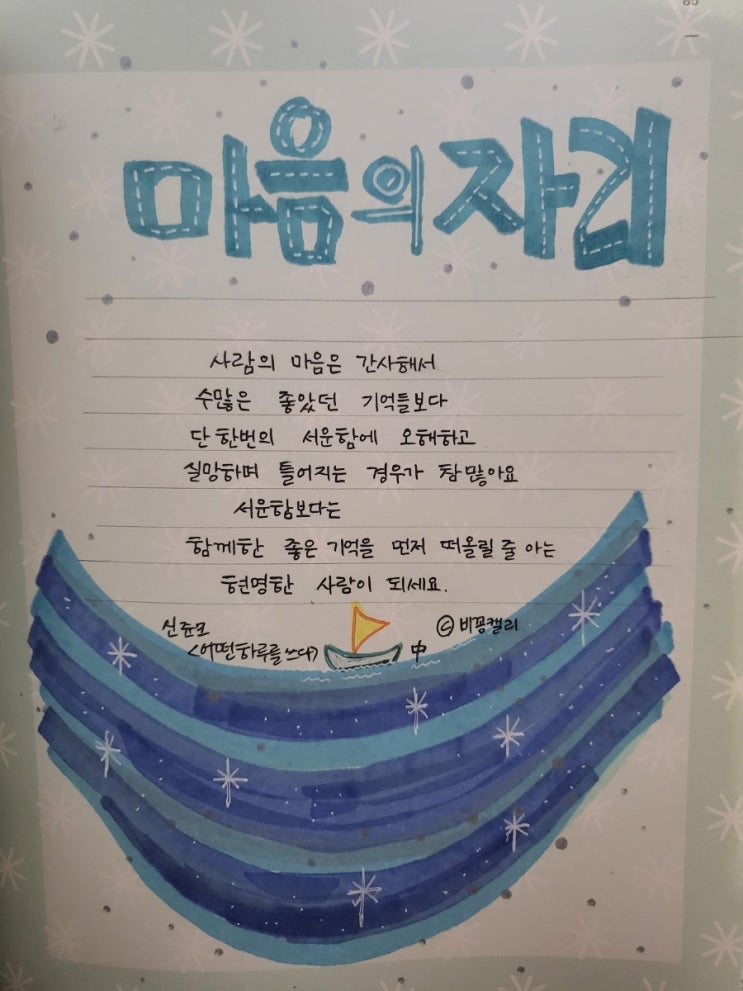 85
마음의 자리
사람의 마음은 간사해서
수많은 좋았던 기억들보다
단 한번의 서운함에 오해하고
실망하며 틀어지는 경우가 참 많아요
서운함보다는
함께한 좋은 기억을 먼저 떠올릴 줄 아는
현명한 사람이 되세요.
신준모
<어떤하루를 쓰다> 中
ⓒ 비퐁캘리